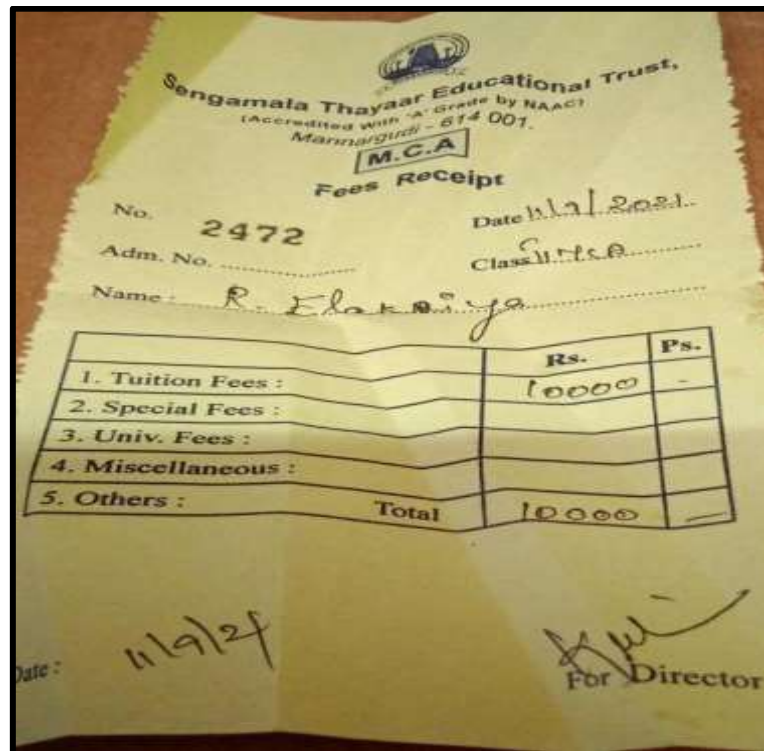 Sengamala Thayaar Educational Trust,
(Accredited with 'A' Grade by NAAC)
Mannargudi - 614 001.
M.C.A
Fees Receipt
No. 2472 Date 11/9/2021
Adm. No. Class
Name : R. Elakkiya
Rs. Ps.
1. Tuition Fees : 10000 -
2. Special Fees :
3. Univ. Fees :
4. Miscellaneous :
5. Others :
Total 10000 —
Date : 11/9/21
For Director